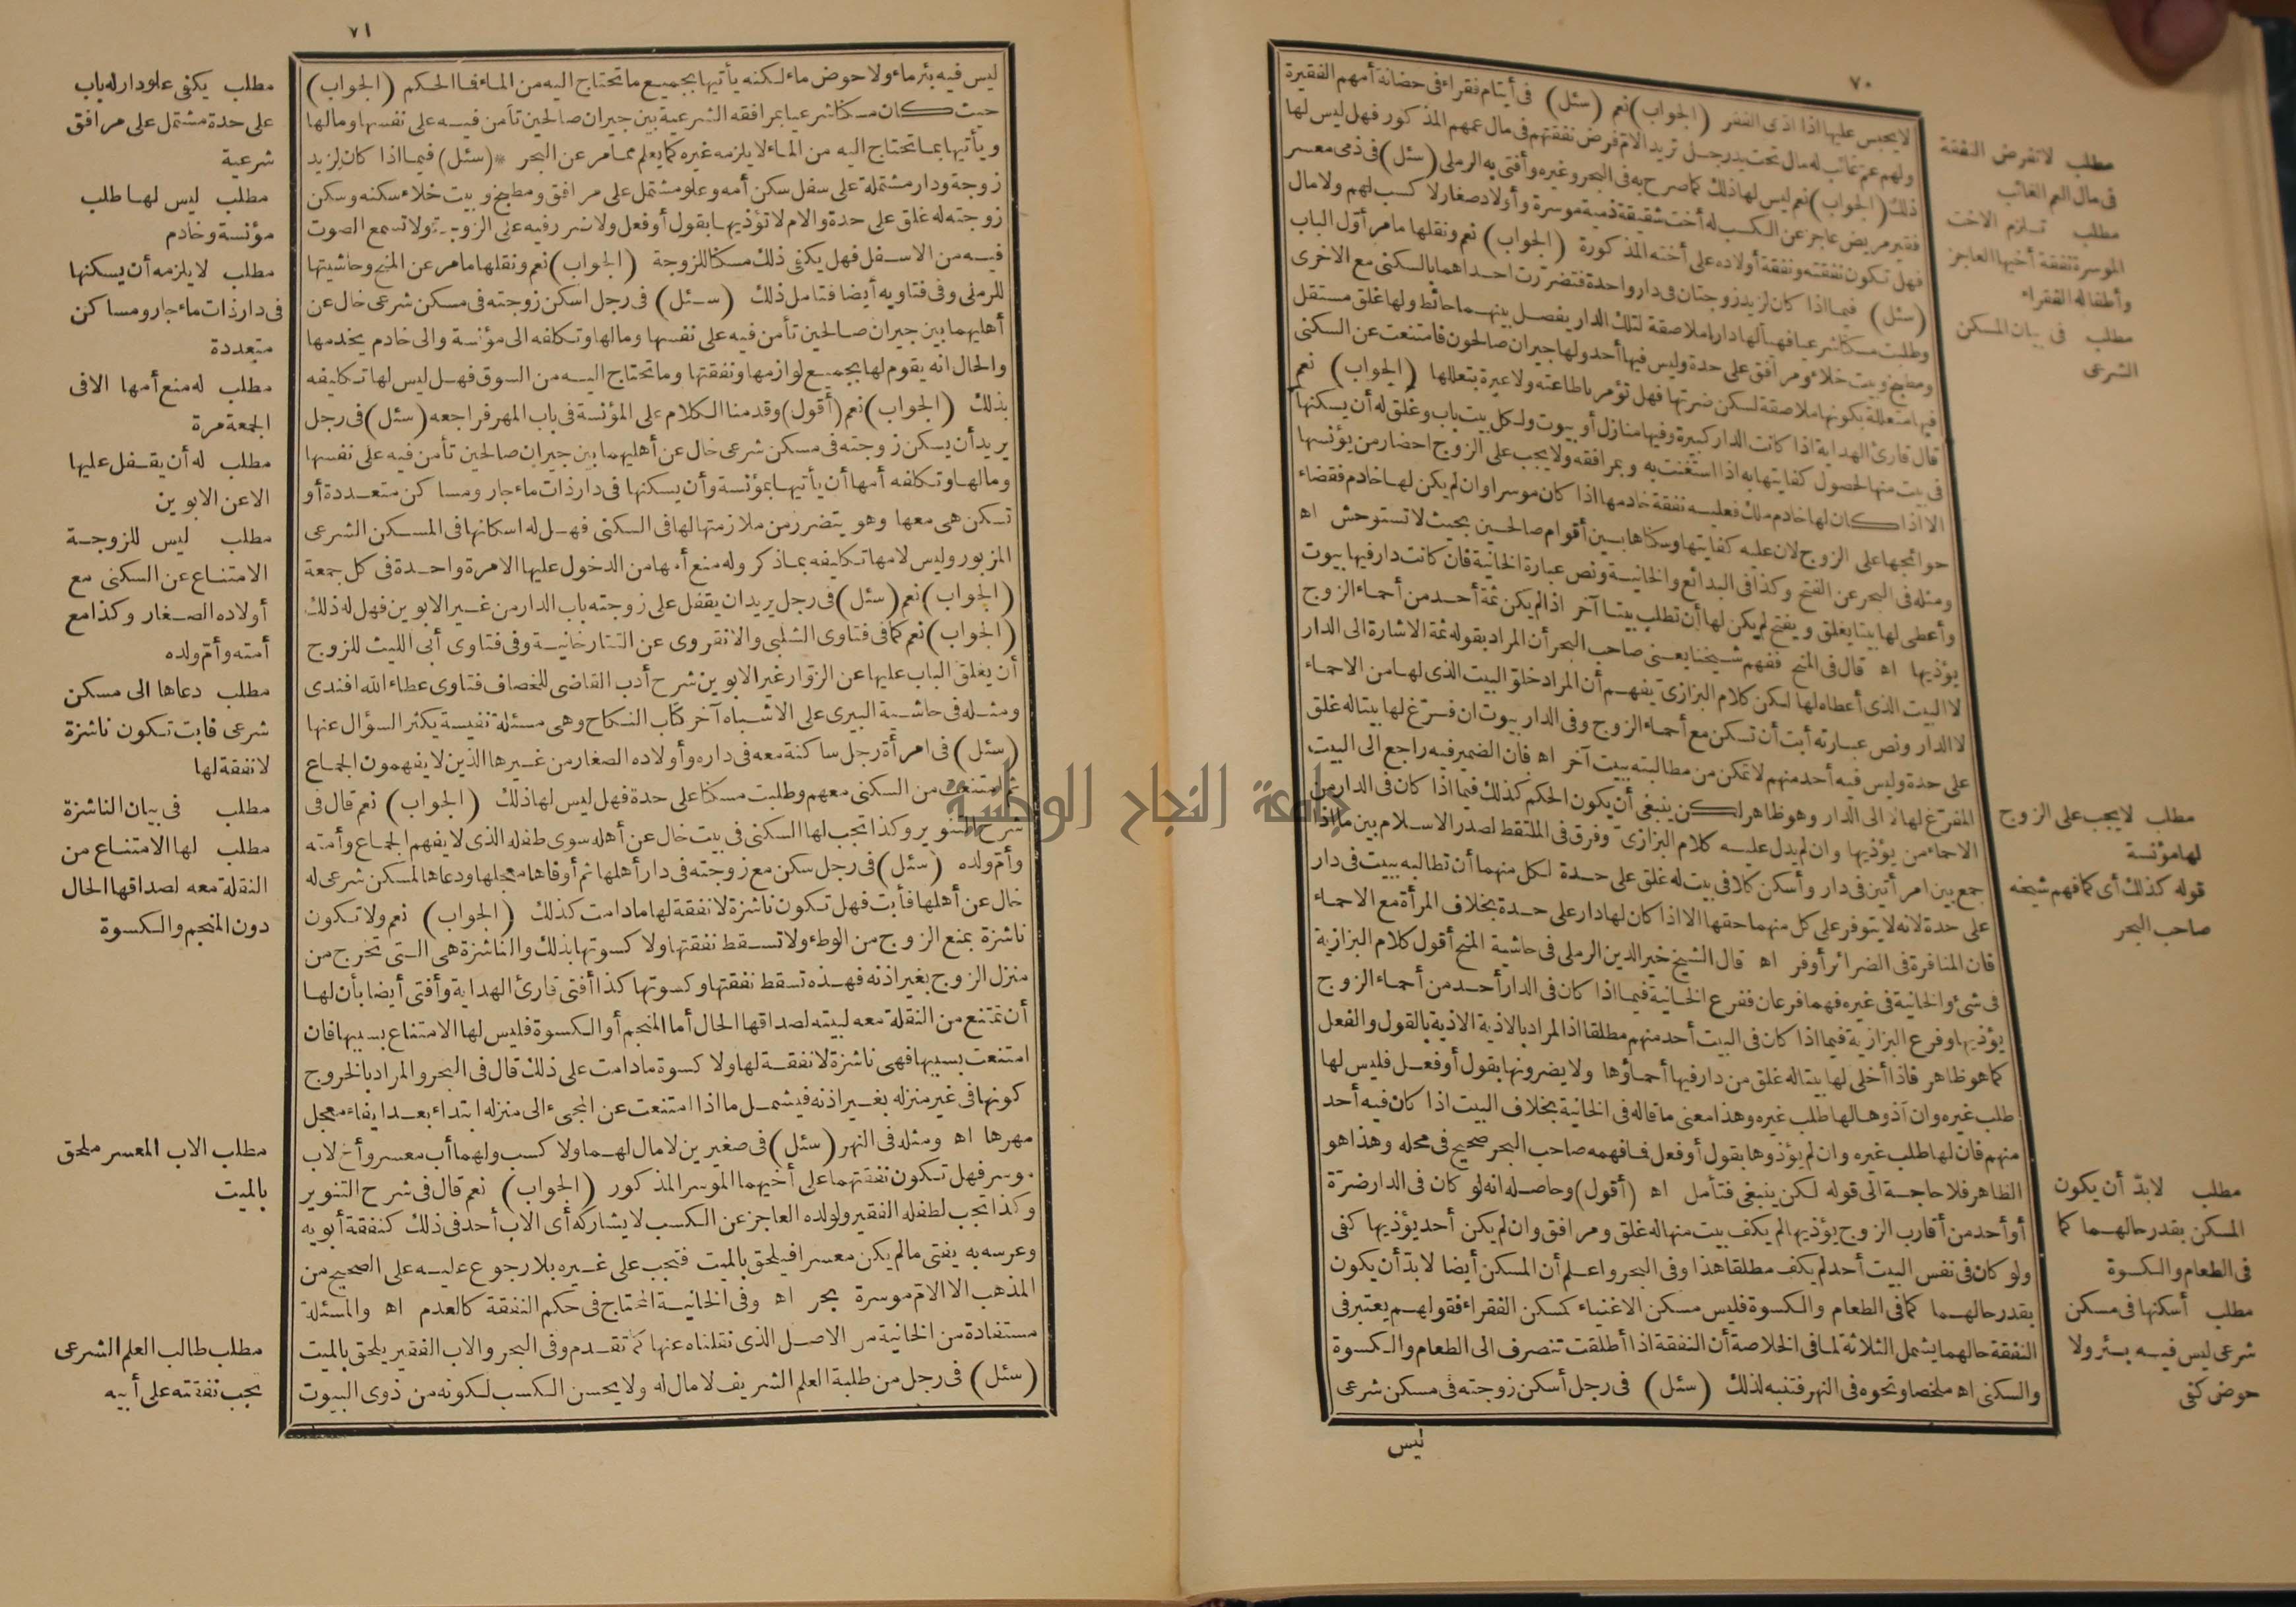 ٧٠
لا يحبس عليها اذا ادى الفقر (الجواب) نعم (سئل) فى أيتام فقراء فى حضانة أمهم الفقيرة
ولهم عم غائب له مال تحت يد رجل تريد الام فرض نفقتهم فى مال عمهم المذكور فهل ليس لها
ذلك (الجواب) نعم ليس لها ذلك كما صرح به فى البحر وغيره وأفتى به الرملى (سئل) فى ذمى معسر
فقير مريض عاجز عن الكسب له أخت شقيقة ذمية موسرة وأولاد صغار لا كسب لهم ولا مال
فهل تكون نفقته ونفقة أولاده على أخته المذكورة (الجواب) نعم ونقلها ما مر أول الباب
(سئل) فيما اذا كان لزيد زوجتان فى دار واحدة فتضررت احداهما بالسكنى مع الاخرى
وطلبت مسكنا شرعيا فهيأ لها دارا ملاصقة لتلك الدار يفصل بينهما حائط ولها غلق مستقل
ومطبخ وبيت خلاء ومرافق على حدة وليس فيها أحد ولها جيران صالحون فامتنعت عن السكنى
فيها متعللة بكونها ملاصقة لسكن ضرتها فهل تؤمر باطاعته ولا عبرة بتعللها (الجواب) نعم
قال قارئ الهداية اذا كانت الدار كبيرة وفيها منازل أو بيوت ولكل بيت باب وغلق له أن يسكنها
فى بيت منها لحصول كفايتها به اذا استغنت به وبمرافقه ولا يجب على الزوج احضار من يؤنسها
الا اذا كان لها خادم ملك فعليه نفقة خادمها اذا كان موسرا وان لم يكن لها خادم فقضاء
حوائجها على الزوج لان عليه كفايتها وسكناها بين أقوام صالحين بحيث لا تستوحش اه
ومثله فى البحر عن الفتح وكذا فى البدائع والخانية ونص عبارة الخانية فان كانت دار فيها بيوت
وأعطى لها بيتا يغلق ويفتح لم يكن لها أن تطلب بيتا آخر اذا لم يكن ثمة أحد من أحماء الزوج
يؤذيها اه قال فى المنح ففهم شيخنا يعنى صاحب البحر أن المراد بقوله ثمة الاشارة الى الدار
لا البيت الذى أعطاه لها لكن كلام البزازى يفهم أن المراد خلو البيت الذى لها من الاحماء
لا الدار ونص عبارته أبت أن تسكن مع أحماء الزوج وفى الدار بيوت ان فرغ لها بيتا له غلق
على حدة وليس فيه أحد منهم لا تمكن من مطالبته ببيت آخر اه فان الضمير فيه راجع الى البيت
المفرغ لها لا الى الدار وهو ظاهر لكن ينبغى أن يكون الحكم كذلك فيما اذا كان فى الدار من
الاحماء من يؤذيها وان لم يدل عليه كلام البزازى وفرق فى الملتقط لصدر الاسلام بين ما اذا
جمع بين امرأتين فى دار وأسكن كلا فى بيت له غلق على حدة لكل منهما أن تطالبه ببيت فى دار
على حدة لانه لا يتوفر على كل منهما حقها الا اذا كان لها دار على حدة بخلاف المرأة مع الاحماء
فان المنافرة فى الضرائر أوفر اه قال الشيخ خير الدين الرملى فى حاشية المنح أقول كلام البزازية
فى شئ والخانية فى غيره فهما فرعان ففرع الخانية فيما اذا كان فى الدار أحد من أحماء الزوج
يؤذيها وفرع البزازية فيما اذا كان فى البيت أحد منهم مطلقا اذ المراد بالاذية الاذية بالقول والفعل
كما هو ظاهر فاذا أخلى لها بيتا له غلق من دار فيها أحماؤها ولا يضرونها بقول أو فعل فليس لها
طلب غيره وان آذوها لها طلب غيره وهذا معنى ما قاله فى الخانية بخلاف البيت اذا كان فيه أحد
منهم فان لها طلب غيره وان لم يؤذوها بقول أو فعل فما فهمه صاحب البحر صحيح فى محله وهذا هو
الظاهر فلا حاجة الى قوله لكن ينبغى فتأمل اه (أقول) وحاصله انه لو كان فى الدار ضرة
أو أحد من أقارب الزوج يؤذيها لم يكف بيت منها له غلق ومرافق وان لم يكن أحد يؤذيها كفى
ولو كان فى نفس البيت أحد لم يكف مطلقا هذا وفى البحر واعلم أن المسكن أيضا لابد أن يكون
بقدر حالهما كما فى الطعام والكسوة فليس مسكن الاغنياء كمسكن الفقراء فقولهم يعتبر فى
النفقة حالهما يشمل الثلاثة لما فى الخلاصة أن النفقة اذا أطلقت تنصرف الى الطعام والكسوة
والسكنى اه ملخصا ونحوه فى النهر فتنبه لذلك (سئل) فى رجل أسكن زوجته فى مسكن شرعى
ليس
مطلب لا تفرض النفقة
فى مال العم الغائب
مطلب تلزم الاخت
الموسرة نفقة أخيها العاجز
وأطفاله الفقراء
مطلب فى بيان المسكن
الشرعى
مطلب لا يجب على الزوج
لها مؤنسة
قوله كذلك أى كما فهم شيخه
صاحب البحر
مطلب لابد أن يكون
المسكن بقدر حالهما كما
فى الطعام والكسوة
مطلب أسكنها فى مسكن
شرعى ليس فيه بئر ولا
حوض كفى
٧١
ليس فيه بئر ماء ولا حوض ماء لكنه يأتيها بجميع ما تحتاج اليه من الماء فما الحكم (الجواب)
حيث كان مسكنا شرعيا بمرافقه الشرعية بين جيران صالحين تأمن فيه على نفسها ومالها
ويأتيها بما تحتاج اليه من الماء لا يلزمه غيره كما يعلم مما مر عن البحر * (سئل) فيما اذا كان لزيد
زوجة ودار مشتملة على سفل سكن أمه وعلو مشتمل على مرافق ومطبخ وبيت خلاء سكنه وسكن
زوجته له غلق على حدة والام لا تؤذيها بقول أو فعل ولا ضرر فيه على الزوجة ولا تسمع الصوت
فيه من الاسفل فهل يكفى ذلك مسكنا للزوجة (الجواب) نعم ونقلها ما مر عن المنح وحاشيتها
للرملى وفى فتاويه أيضا فتامل ذلك (سئل) فى رجل اسكن زوجته فى مسكن شرعى خال عن
أهليهما بين جيران صالحين تأمن فيه على نفسها ومالها وتكلفه الى مؤنسة والى خادم يخدمها
والحال انه يقوم لها بجميع لوازمها ونفقتها وما تحتاج اليه من السوق فهل ليس لها تكليفه
بذلك (الجواب) نعم (أقول) وقدمنا الكلام على المؤنسة فى باب المهر فراجعه (سئل) فى رجل
يريد أن يسكن زوجته فى مسكن شرعى خال عن أهليهما بين جيران صالحين تأمن فيه على نفسها
ومالها وتكلفه أمها أن يأتيها بمؤنسة وأن يسكنها فى دار ذات ماء جار ومساكن متعددة أو
تسكن هى معها وهو يتضرر من ملازمتها لها فى السكنى فهل له اسكانها فى المسكن الشرعى
المزبور وليس لامها تكليفه بما ذكر وله منع أمها من الدخول عليها الا مرة واحدة فى كل جمعة
(الجواب) نعم (سئل) فى رجل يريد ان يقفل على زوجته باب الدار من غير الابوين فهل له ذلك
(الجواب) نعم كما فى فتاوى الشلبى والانقروى عن التتارخانية وفى فتاوى أبى الليث للزوج
أن يغلق الباب عليها عن الزوار غير الابوين شرح أدب القاضى للخصاف فتاوى عطاء الله افندى
ومثله فى حاشية البيرى على الاشباه آخر كتاب النكاح وهى مسئلة نفيسة يكثر السؤال عنها
(سئل) فى امرأة رجل ساكنة معه فى داره وأولاده الصغار من غيرها الذين لا يفهمون الجماع
تمتنع من السكنى معهم وطلبت مسكنا على حدة فهل ليس لها ذلك (الجواب) نعم قال فى
شرح التنوير وكذا تجب لها السكنى فى بيت خال عن أهله سوى طفله الذى لا يفهم الجماع وأمته
وأم ولده (سئل) فى رجل سكن مع زوجته فى دار أهلها ثم أوفاها معجلها ودعاها لمسكن شرعى له
خال عن أهلها فأبت فهل تكون ناشزة لا نفقة لها ما دامت كذلك (الجواب) نعم ولا تكون
ناشزة بمنع الزوج من الوطء ولا تسقط نفقتها ولا كسوتها بذلك والناشزة هى التى تخرج من
منزل الزوج بغير اذنه فهذه تسقط نفقتها وكسوتها كذا أفتى قارئ الهداية وأفتى أيضا بأن لها
أن تمتنع من النقلة معه لبيته لصداقها الحال أما المنجم أو الكسوة فليس لها الامتناع بسببها فان
امتنعت بسببها فهى ناشزة لا نفقة لها ولا كسوة ما دامت على ذلك قال فى البحر والمراد بالخروج
كونها فى غير منزله بغير اذنه فيشمل ما اذا امتنعت عن المجىء الى منزله ابتداء بعد ايفاء معجل
مهرها اه ومثله فى النهر (سئل) فى صغيرين لا مال لهما ولا كسب ولهما أب معسر وأخ لاب
موسر فهل تكون نفقتهما على أخيهما الموسر المذكور (الجواب) نعم قال فى شرح التنوير
وكذا تجب لطفله الفقير ولولده العاجز عن الكسب لا يشاركه أى الاب أحد فى ذلك كنفقة أبويه
وعرسه به يفتى ما لم يكن معسرا فيلحق بالميت فتجب على غيره بلا رجوع عليه على الصحيح من
المذهب الا الام موسرة بحر اه وفى الخانية المحتاج فى حكم النفقة كالعدم اه والمسئلة
مستفادة من الخانية من الاصل الذى نقلناه عنها كما تقدم وفى البحر والاب الفقير يلحق بالميت
(سئل) فى رجل من طلبة العلم الشريف لا مال له ولا يحسن الكسب لكونه من ذوى البيوت
مطلب يكفى علو دار له باب
على حدة مشتمل على مرافق
شرعية
مطلب ليس لها طلب
مؤنسة وخادم
مطلب لا يلزمه أن يسكنها
فى دار ذات ماء جار ومساكن
متعددة
مطلب له منع أمها الا فى
الجمعة مرة
مطلب له أن يقفل عليها
الا عن الابوين
مطلب ليس للزوجة
الامتناع عن السكنى مع
أولاده الصغار وكذا مع
أمته وأم ولده
مطلب دعاها الى مسكن
شرعى فابت تكون ناشزة
لا نفقة لها
مطلب فى بيان الناشزة
مطلب لها الامتناع من
النقلة معه لصداقها الحال
دون المنجم والكسوة
مطلب الاب المعسر ملحق
بالميت
مطلب طالب العلم الشرعى
تجب نفقته على أبيه
جامعة النجاح الوطنية